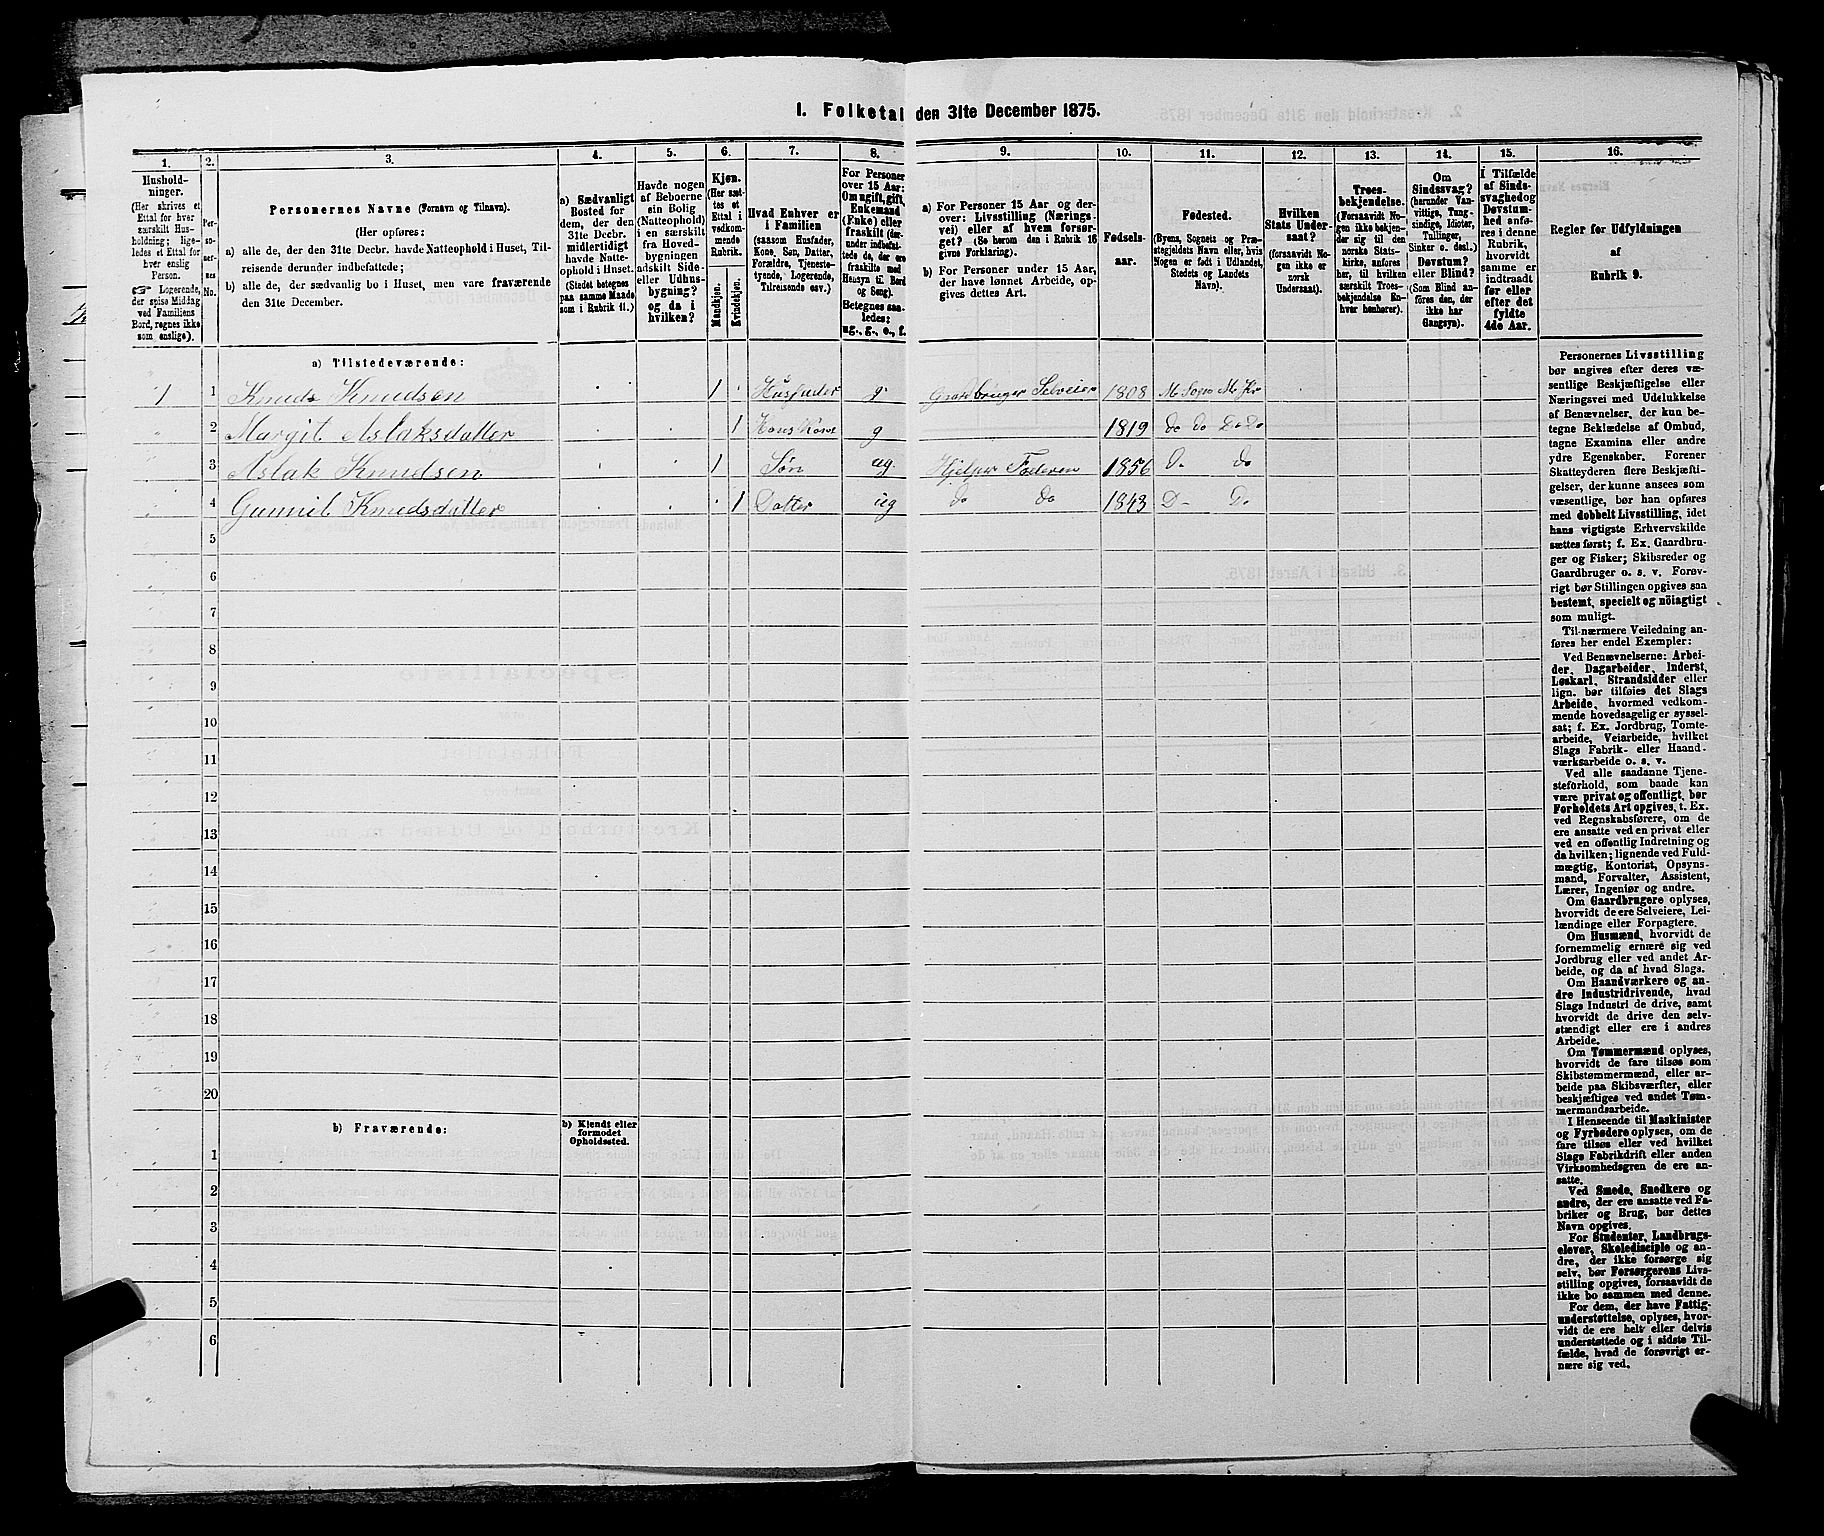 1. Folketal den 31te December 1875.
1. 2. 3. 4. 5. 6. 7. 8. 9. 10. 11. 12. 13. 14. 15. 16.
Hushold-
ninger.
(Her skrives et
Ettal for hver
særskilt Hus-
holdning; lige-
ledes et Ettal for
hver enslig
Person.
☞ Logerende,
der spise Middag
ved Familiens
Bord, regnes ikke
som enslige).
Per-
so-
ner-
nes
No.
Personernes Navne (Fornavn og Tilnavn).
(Her opføres:
a) alle de, der den 31te Decbr. havde Natteophold i Huset, Til-
reisende derunder indbefattede;
b) alle de, der sædvanlig bo i Huset, men vare fraværende
den 31te December.
a) Sædvanligt
Bosted for
dem, der den
31te Decbr.
midlertidigt
havde Natte-
ophold i Huset.
(Stedet betegnes
paa samme Maade
som i Rubrik 11.)
Havde nogen
af Beboerne
sin Bolig
(Natteophold)
i en særskilt
fra Hoved-
bygningen
adskilt Side-
eller Udhus-
bygning?
og da i
hvilken?
Kjøn.
(Her sæt-
tes et
Ettal i
vedkom-
mende
Rubrik.
Mandkjøn.
Kvindekjøn.
Hvad Enhver er
i Familien
(saasom Husfader,
Kone, Søn, Datter,
Forældre, Tjeneste-
tyende, Logerende,
Tilreisende osv.)
For Personer
over 15 Aar:
Om ugift, gift,
Enkemand
(Enke) eller
fraskilt (der-
under indbefat-
tede de, der ere
fraskilte med
Hensyn til Bord
og Seng).
Betegnes saa-
ledes:
ug., g., e., f.
a) For Personer 15 Aar og der-
over: Livsstilling (Nærings-
vei) eller af hvem forsør-
get? (Se herom den i Rubrik 16
givne Forklaring).
b) For Personer under 15 Aar,
der have lønnet Arbeide, op-
gives dettes Art.
Fødsels-
aar.
Fødested.
(Byens, Sognets og Præ-
stegjeldets Navn eller, hvis
Nogen er født i Udlandet,
Stedets og Landets
Navn).
Hvilken
Stats Under-
saat?
(forsaavidt No-
gen ikke er
norsk
Undersaat).
Troes-
bekjendelse.
(Forsaavidt No-
gen ikke bekjen-
der sig til den
norske Stats-
kirke, anføres
her, til hvilken
særskilt Troes-
bekjendelse En-
hver henhører).
Om
Sindssvag?
(herunder Van-
vittige, Tung-
sindige, Idioter,
Tullinger,
Sinker o. desl.)
Døvstum?
eller Blind?
(Som Blind an-
føres den, der
ikke har
Gangsyn).
I Tilfælde
af Sinds-
svaghed og
Døvstum-
hed anfø-
res i denne
Rubrik,
hvorvidt
samme er
indtraadt
før eller
efter det
fyldte
4de Aar.
Regler for Udfyldningen
af
Rubrik 9.
a) Tilstedeværende:
1 1 Knuds Knudsen 1 Husfader g. Grardbruger Selveier 1808 M. Sogn M. Kr
2 Margit Aslaksdatter 1 Hans Kone g 1819 do do Do Do
3 Aslak Knudsen 1 Søn ug. Hjelper Faderen 1856 D. do
4 Gunnil Knudsdatter 1 Datter ug do do 1843 D- Do
5
6
7
8
9
10
11
12
13
14
15
16
17
18
19
20
b) Fraværende:
b) Kjendt eller
formodet
Opholdssted.
1
2
3
4
5
6
Personernes Livsstilling
bør angives efter deres væ-
sentlige Beskjæftigelse eller
Næringsvei med Udelukkelse
af Benævnelser, der kun be-
tegne Beklædelse af Ombud,
tagne Examina eller andre
ydre Egenskaber. Forener
Skatteyderen flere Beskjæfti-
gelser, der kunne ansees som
væsentlige, bør han opføres
med dobbelt Livsstilling, idet
hans vigtigste Erhvervskilde
sættes først; f. Ex. Gaardbru-
ger og Fisker; Skibsreder og
Gaardbruger o. s. v. Forøv-
rigt bør Stillingen opgives saa
bestemt, specielt og nöiagtigt
som muligt.
Til nærmere Veiledning an-
føres her endel Exempler:
Ved Benævnelserne: Arbei-
der, Dagarbeider, Inderst,
Løskarl, Strandsidder eller
lign. bør tilføies det Slags
Arbeide, hvormed vedkom-
mende hovedsagelig er syssel-
sat; f. Ex. Jordbrug, Tomte-
arbeide, Veiarbeide, hvilket
Slags Fabrik- eller Haand-
værksarbeide o. s. v.
Ved alle saadanne Tjene-
steforhold, som baade kan
være privat og offentligt, bør
Forholdets Art opgives, t. Ex.
ved Regnskabsførere, om de
ere ansatte ved en privat eller
ved en offentlig Indretning og
da hvilken; lignende ved Fuld-
mægtig, Kontorist, Opsyns-
mand, Forvalter, Assistent,
Lærer, Ingeniør og andre.
Om Gaardbrugere oplyses,
hvorvidt de ere Selveiere, Lei-
lændinge eller Forpagtere.
Om Husmænd, hvorvidt de
fornemmelig ernære sig ved
Jordbrug eller ved andet Ar-
beide, og da af hvad Slags.
Om Haandværkere og an-
dre Industridrivende, hvad
Slags Industri de drive, samt
hvorvidt de drive den selv-
stændigt eller ere i andres
Arbeide.
Om Tømmermænd oplyses,
hvorvidt de fare tilsøs som
Skibstømmermænd, eller ar-
beide paa Skibsværfter, eller
beskjæftiges ved andet Tøm-
mermandsarbeide.
I Henseende til Maskinister
og Fyrbødere oplyses, om de
fare tilsøs eller ved hvilket
Slags Fabrikdrift eller anden
Virksomhedsgren de ere an-
satte.
Ved Smede, Snedkere og
andre, der ere ansatte ved Fa-
briker og Brug, bør dettes
Navn opgives.
For Studenter, Landbrugs-
elever, Skoledisciple og an-
dre, der ikke forsørge sig
selv, bør Forsørgerens Livs-
stilling opgives, forsaavidt de
ikke bo sammen med denne.
For dem, der have Fattig-
understøttelse, oplyses, hvor-
vidt de ere helt eller delvis
understøttede og i sidste Til-
fælde, hvad de forøvrigt er-
nære sig ved.